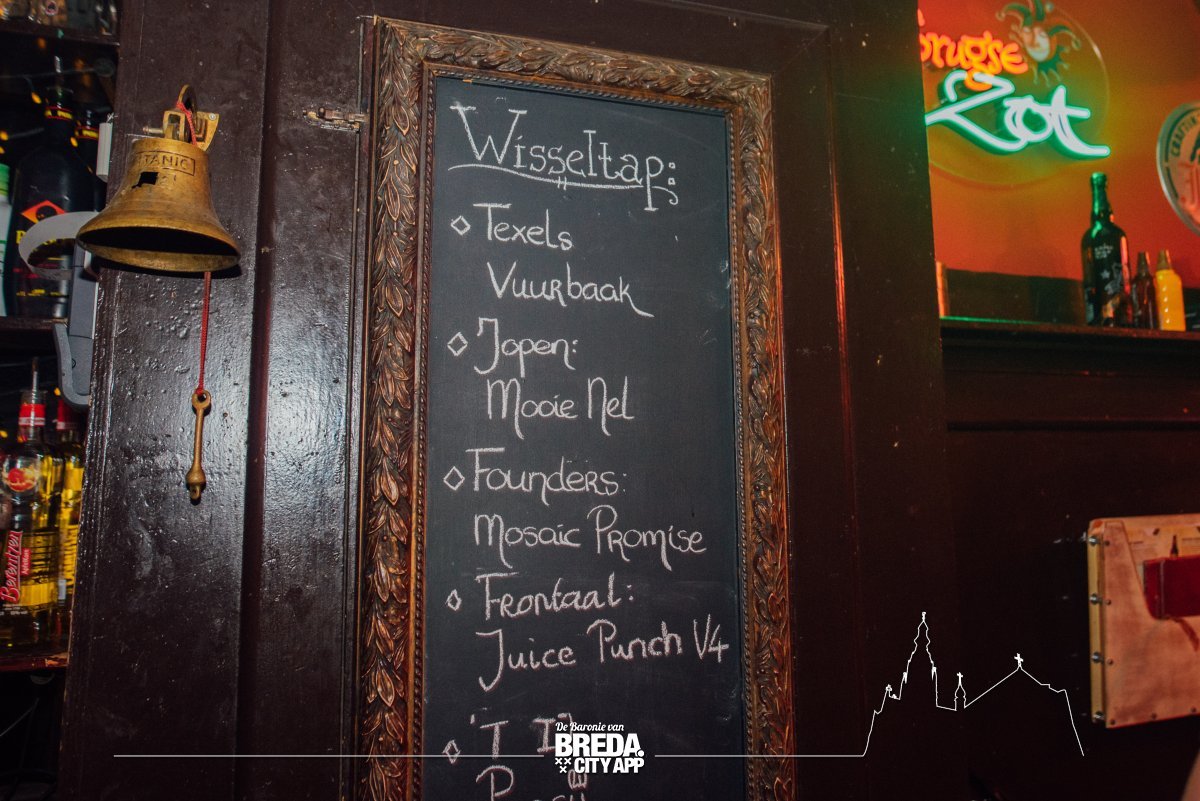 Wisseltap:
Texels
Vuurbaak
Jopen:
Mooie Nel
Founders:
Mosaic Promise
Frontaal:
Juice Punch V4
'T
TANIC
Brugse
Zot
Berentzen
De Baronie van
BREDA.
CITY APP